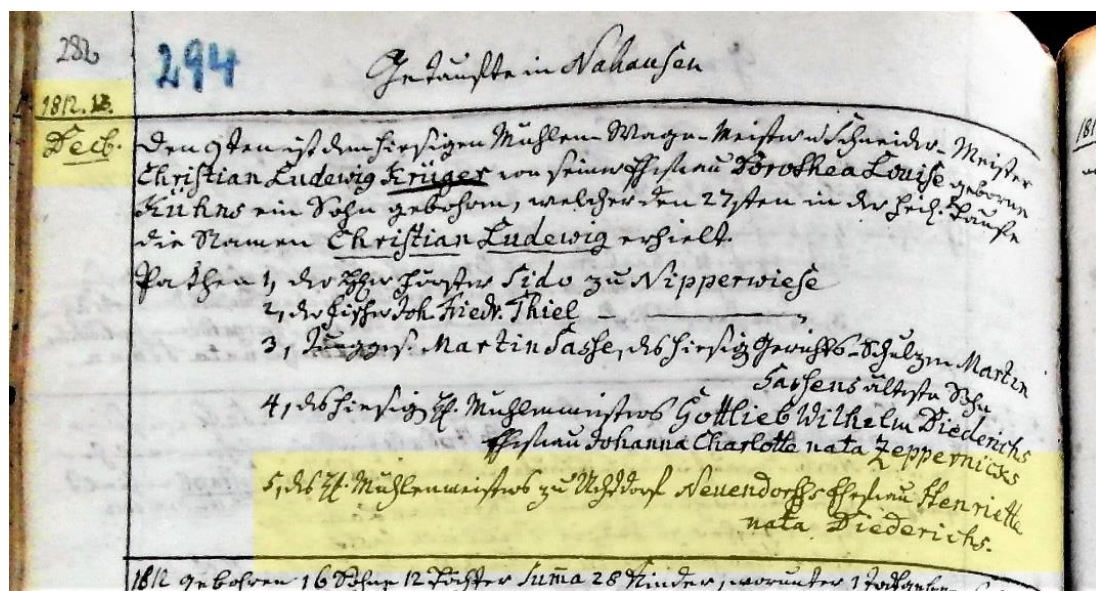 282
294
Getaufte in Nahausen
1812. 12.
Decb.
Den 9ten ist dem hiesigen Mühlen-Wage-Meister u Schneider-Meister
Christian Ludewig Krüger von seiner Ehefrau Dorothea Louise geborne
Kühns ein Sohn gebohren, welcher den 27sten in der heil. Taufe
die Namen Christian Ludewig erhielt.
Pathen 1, der Förster Sido zu Nipperwiese
2, der Fischer Joh. Friedr. Thiel — —
3, Junggs. Martin Sasse, des hiesig Gerichts-Schulzen Martin
Sassens ältester Sohn
4, des hiesig Mühlenmeisters Gottlieb Wilhelm Diederichs
Ehefrau Johanna Charlotte nata Zeppernicks
5, des Mühlenmeisters zu Uchtdorf Neuendorffs Ehefrau Henriette
nata Diederichs.
1812 gebohren 16 Söhne 12 Töchter Suma 28 Kinder, worunter 1
181